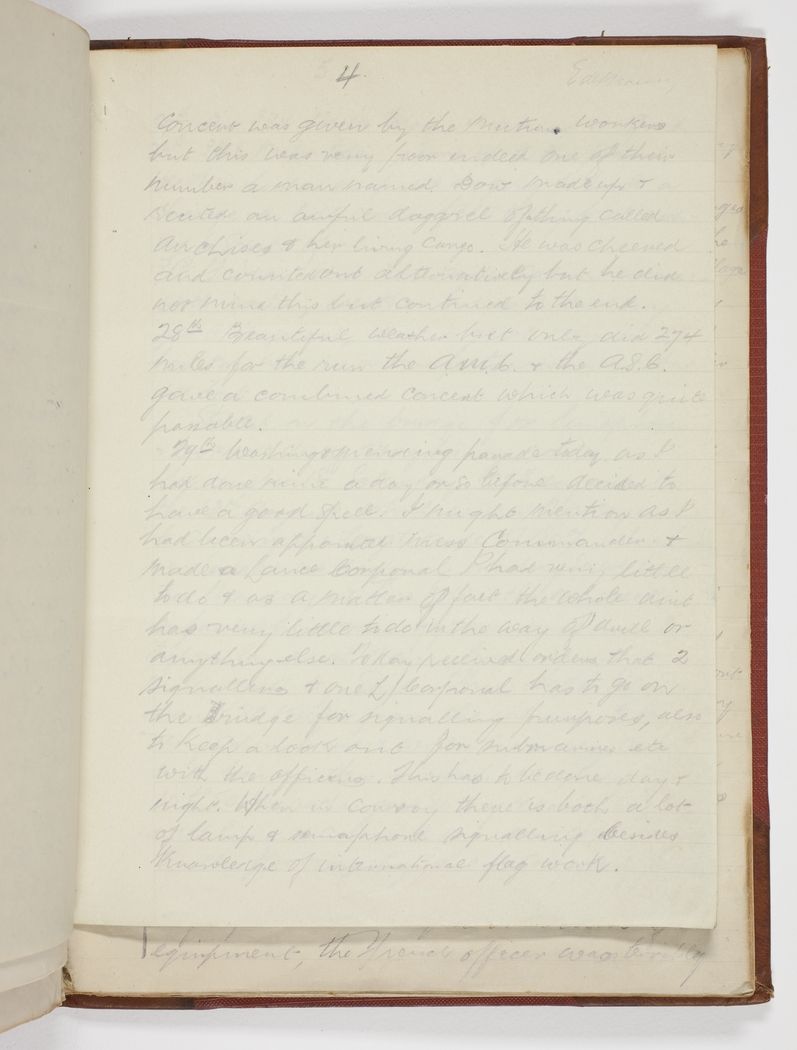 4.
Concert was given by the workers
but this was very poor indeed one of their
number a man named Dow made up &
recited an awful doggerel of thing called
Anchises & her living Cargo. He was cheered
and counted out alternatively but he did
not mind this but continued to the end.
28th Beautiful weather but only did 274
miles for the run the A.M.C. & the A.S.C.
gave a combined Concert which was quite
passable.
29th Washing & mending parade today as I
had done mine a day or so before decided to
have a good spell. I might mention as I
had been appointed Mess Commander &
made a Lance Corporal I had very little
to do & as a matter of fact the whole unit
has very little to do in the way of drill or
anything else. Today received orders that 2
signallers & one L/Corporal has to go on
the Bridge for signalling purposes, also
to keep a look out for submarines etc
with the officers. This has to be done day &
night. When in convoy there is both a lot
of lamp & semaphore signalling besides
knowledge of international flag work.
equipment, the French officer was terribly